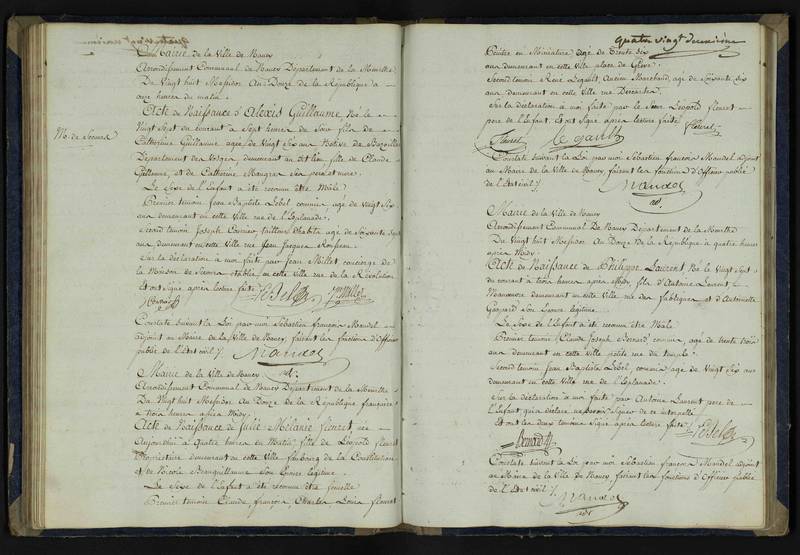 Mairie de la Ville de Nancy
Arrondissement Communal de Nancy Département de la Meurthe
Du Vingt huit Messidor An Douze de la République à
onze heures du matin.
Acte de Naissance d'Alexis Guillaume, Né le
M. de Secours
Vingt Sept du courant à Sept heures du Soir fils de
Catherine Guillaume agée de Vingt Six ans Native de
Département des Vosges, demeurant au dit lieu, fille de Claude
Guillaume, et de Catherine Maugras Ses père et mere.
Le Sexe de l'Enfant a été reconnu être Mâle
Premier temoin, Jean Baptiste Lebel commis, agé de Vingt Six
ans demeurant en cette Ville rue de l'Esplanade.
Second temoin Joseph tailleur d'habits agé de Soixante Sept
ans demeurant en cette Ville rue Jean Jacques Rousseau.
Sur la déclaration à moi faite par Jean Millet concierge de
la Maison de Secours établie en cette Ville rue de la Révolution
Et ont Signé après lecture faite. Lebel J Millet
Constaté Suivant la Loi par moi Sébastien françois Mandel
adjoint au Maire de la Ville de Nancy, faisant les fonctions d'Officier
public de l'Etat civil /. Mandel
adt.
Mairie de la Ville de Nancy
Arrondissement Communal de Nancy Département de la Meurthe
Du Vingt huit Messidor An Douze de la République française
à trois heures après Midy.
Acte de Naissance de Julie Mélanie fleuret, née
Aujourd'hui à Quatre heures du Matin, fille de Léopold fleuret
Propriétaire demeurant en cette Ville faubourg de la Constitution
et de Nicole Son Epouse légitime.
Le Sexe de l'Enfant a été reconnu être femelle
Premier temoin Claude, françois, Charles Louis fleuret
quatre vingt deuxième
Peintre en Miniature agé de trente six
ans demeurant en cette Ville place de Grève.
Second temoin, René Legault, Ancien Marchand, agé de Soixante Six
ans demeurant en cette Ville rue Descartes.
Sur la déclaration à moi faite par le Sieur Léopold fleuret
pere de l'Enfant. Et ont Signé après lecture faite
Fleuret Legault Fleuret
Constaté Suivant la Loi par moi Sébastien françois Mandel adjoint
au Maire de la Ville de Nancy, faisant les fonctions d'Officier public
de l'Etat civil /. Mandel
adt.
Mairie de la Ville de Nancy
Arrondissement Communal De Nancy Département de la Meurthe
Du Vingt huit Messidor An Douze de la République à quatre heures
après Midy.
Acte de Naissance de Philippe Laurent, Né le Vingt Sept
du courant à trois heures après Midy, fils d'Antoine Laurent
Manœuvre demeurant en cette Ville rue des fabriques et d'Antoinette
Gaspard Son Epouse légitime.
Le Sexe de l'Enfant a été reconnu être Mâle
Premier temoin, Claude Joseph Bernard commis, agé de trente trois
ans demeurant en cette Ville petite rue du
Second temoin Jean Baptiste Lebel, commis agé de Vingt Six ans
demeurant en cette Ville rue de l'Esplanade.
Sur la déclaration à moi faite par Antoine Laurent pere de
l'Enfant qui a déclaré ne Savoir Signer de ce interpellé
Et ont les deux temoins Signé après lecture faite /. Lebel
Bernard
Constaté Suivant la Loi par moi Sébastien françois Mandel adjoint
au Maire de la Ville de Nancy, faisant les fonctions d'Officier public
de l'Etat civil /. Mandel
adt.